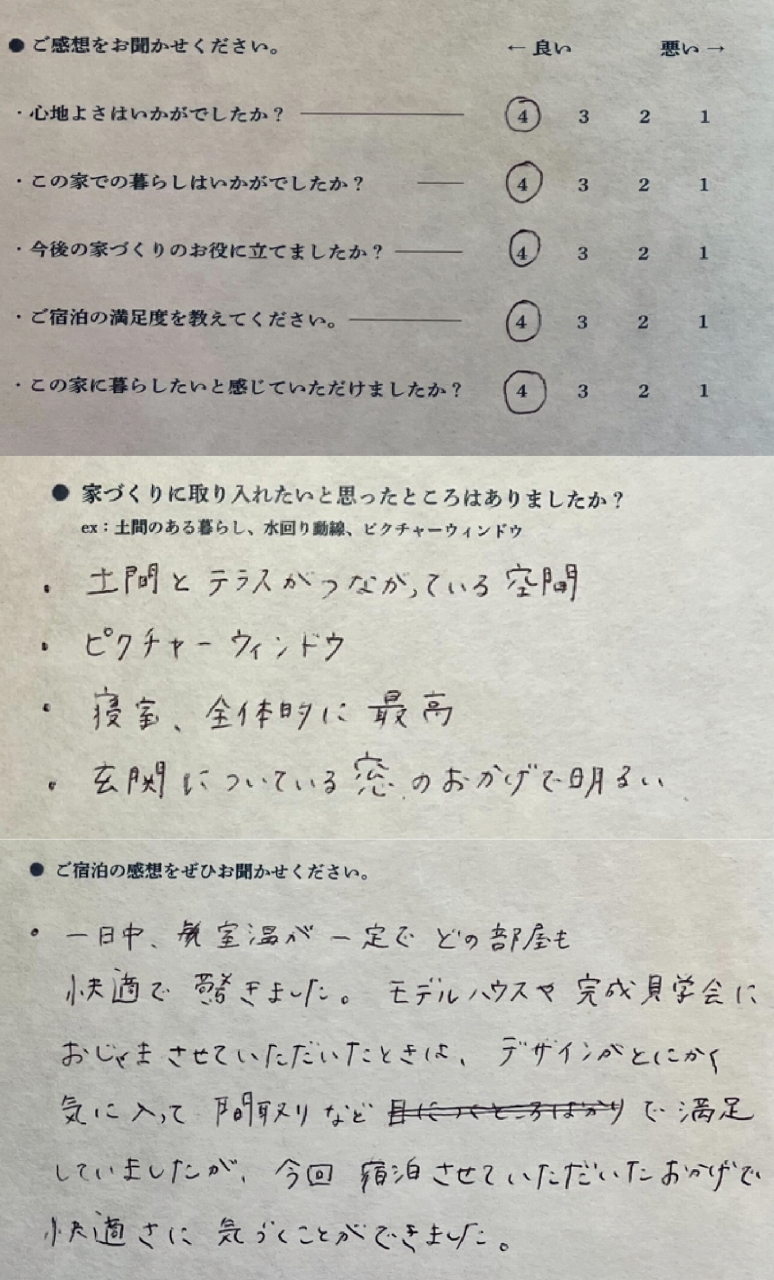 ● ご感想をお聞かせください。 ← 良い 悪い →
・心地よさはいかがでしたか？ 4 3 2 1
・この家での暮らしはいかがでしたか？ 4 3 2 1
・今後の家づくりのお役に立てましたか？ 4 3 2 1
・ご宿泊の満足度を教えてください。 4 3 2 1
・この家に暮らしたいと感じていただけましたか？ 4 3 2 1
● 家づくりに取り入れたいと思ったところはありましたか？
ex：土間のある暮らし、水回り動線、ピクチャーウィンドウ
・土間とテラスがつながっている空間
・ピクチャーウィンドウ
・寝室、全体的に最高
・玄関についている窓のおかげで明るい
● ご宿泊の感想をぜひお聞かせください。
・一日中、室温が一定でどの部屋も
快適で驚きました。モデルハウスや完成見学会に
おじゃまさせていただいたときは、デザインがとにかく
気に入って間取りなど目につくところばかりで満足
していましたが、今回宿泊させていただいたおかげで
快適さに気づくことができました。